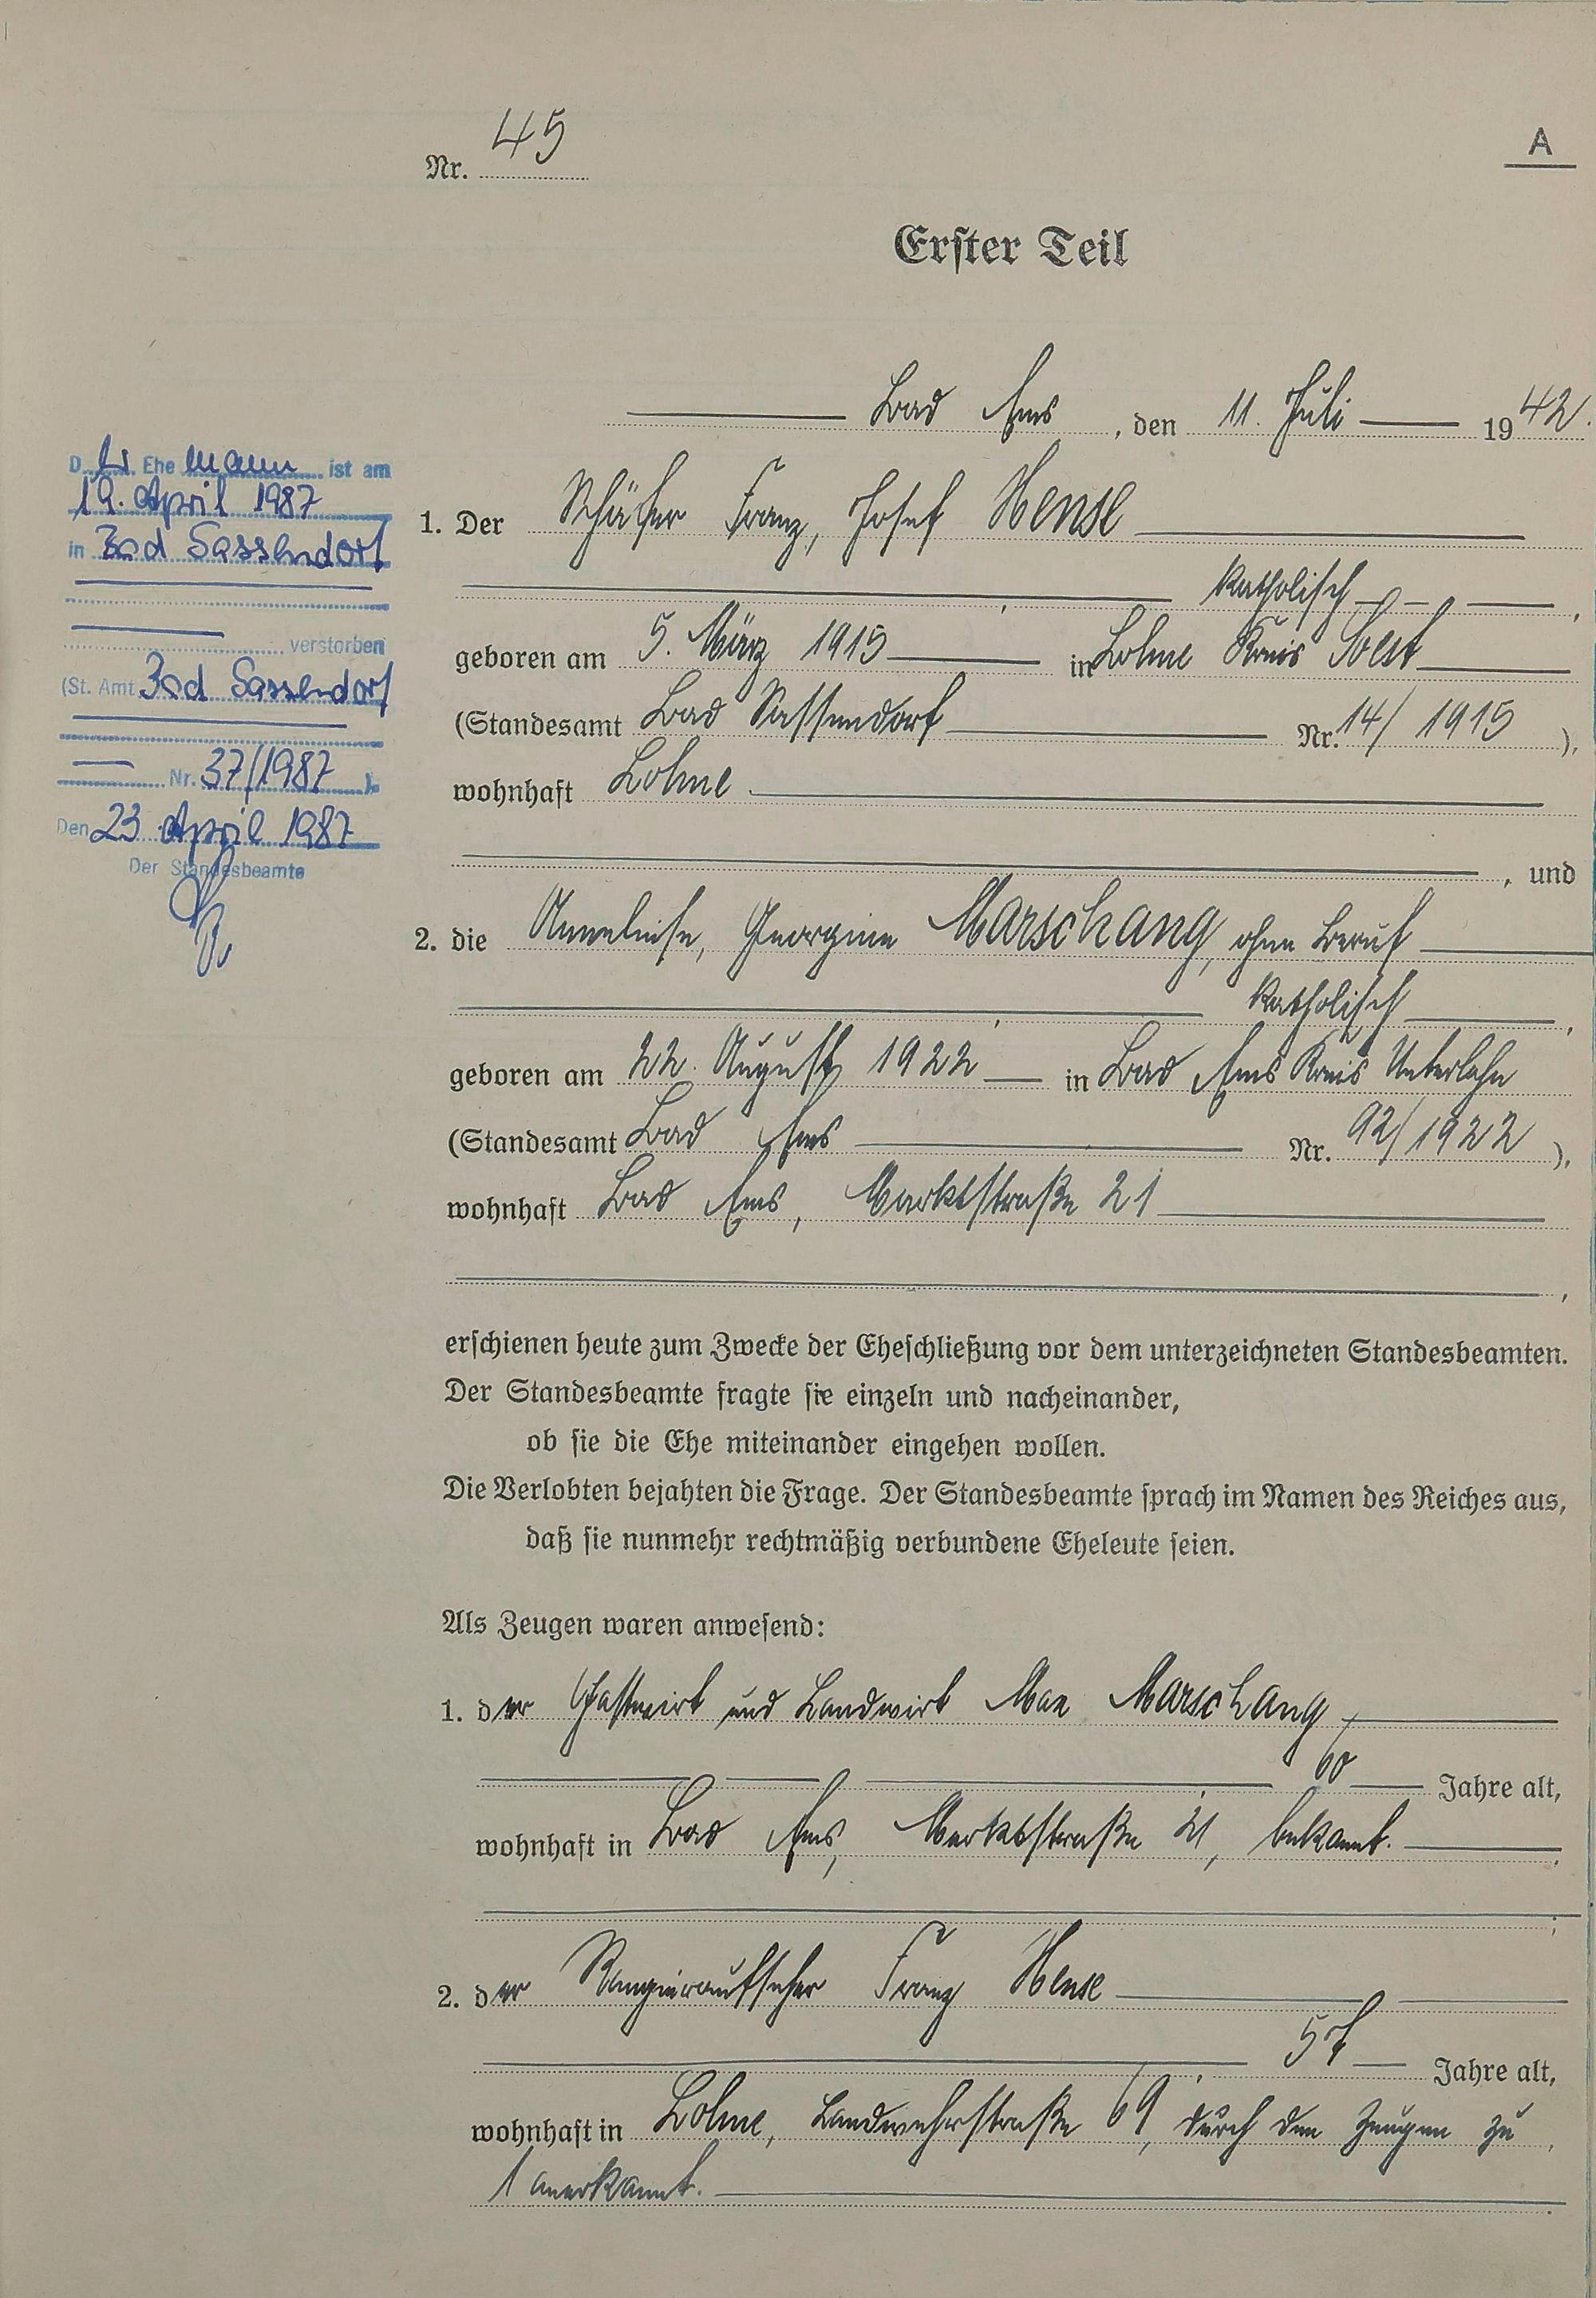 Nr. 45
A
Erster Teil
Bad Ems, den 11. Juli 1942.
Der Ehemann ist am
19. April 1987
in Bad Sassendorf
verstorben
(St. Amt Bad Sassendorf
Nr. 37/1987 ).
Den 23 April 1987
Der Standesbeamte
1. Der Schäfer Franz, Josef Hense
katholisch,
geboren am 5. März 1915 in Lohne Kreis Soest
(Standesamt Bad Sassendorf Nr. 14/1915 ),
wohnhaft Lohne
, und
2. die Anneliese, Georgine Marschang, ohne Beruf
katholisch,
geboren am 22. August 1922 in Bad Ems Kreis Unterlahn
(Standesamt Bad Ems Nr. 92/1922 ),
wohnhaft Bad Ems, Marktstraße 21
,
erschienen heute zum Zwecke der Eheschließung vor dem unterzeichneten Standesbeamten.
Der Standesbeamte fragte sie einzeln und nacheinander,
ob sie die Ehe miteinander eingehen wollen.
Die Verlobten bejahten die Frage. Der Standesbeamte sprach im Namen des Reiches aus,
daß sie nunmehr rechtmäßig verbundene Eheleute seien.
Als Zeugen waren anwesend:
1. der Gastwirt und Landwirt Max Marschang,
60 Jahre alt,
wohnhaft in Bad Ems, Marktstraße 21, bekannt.
;
2. der Rangieraufseher Franz Hense
Jahre alt,
wohnhaft in Lohne, Landwehrstraße 69, durch den Zeugen zu
1 anerkannt.